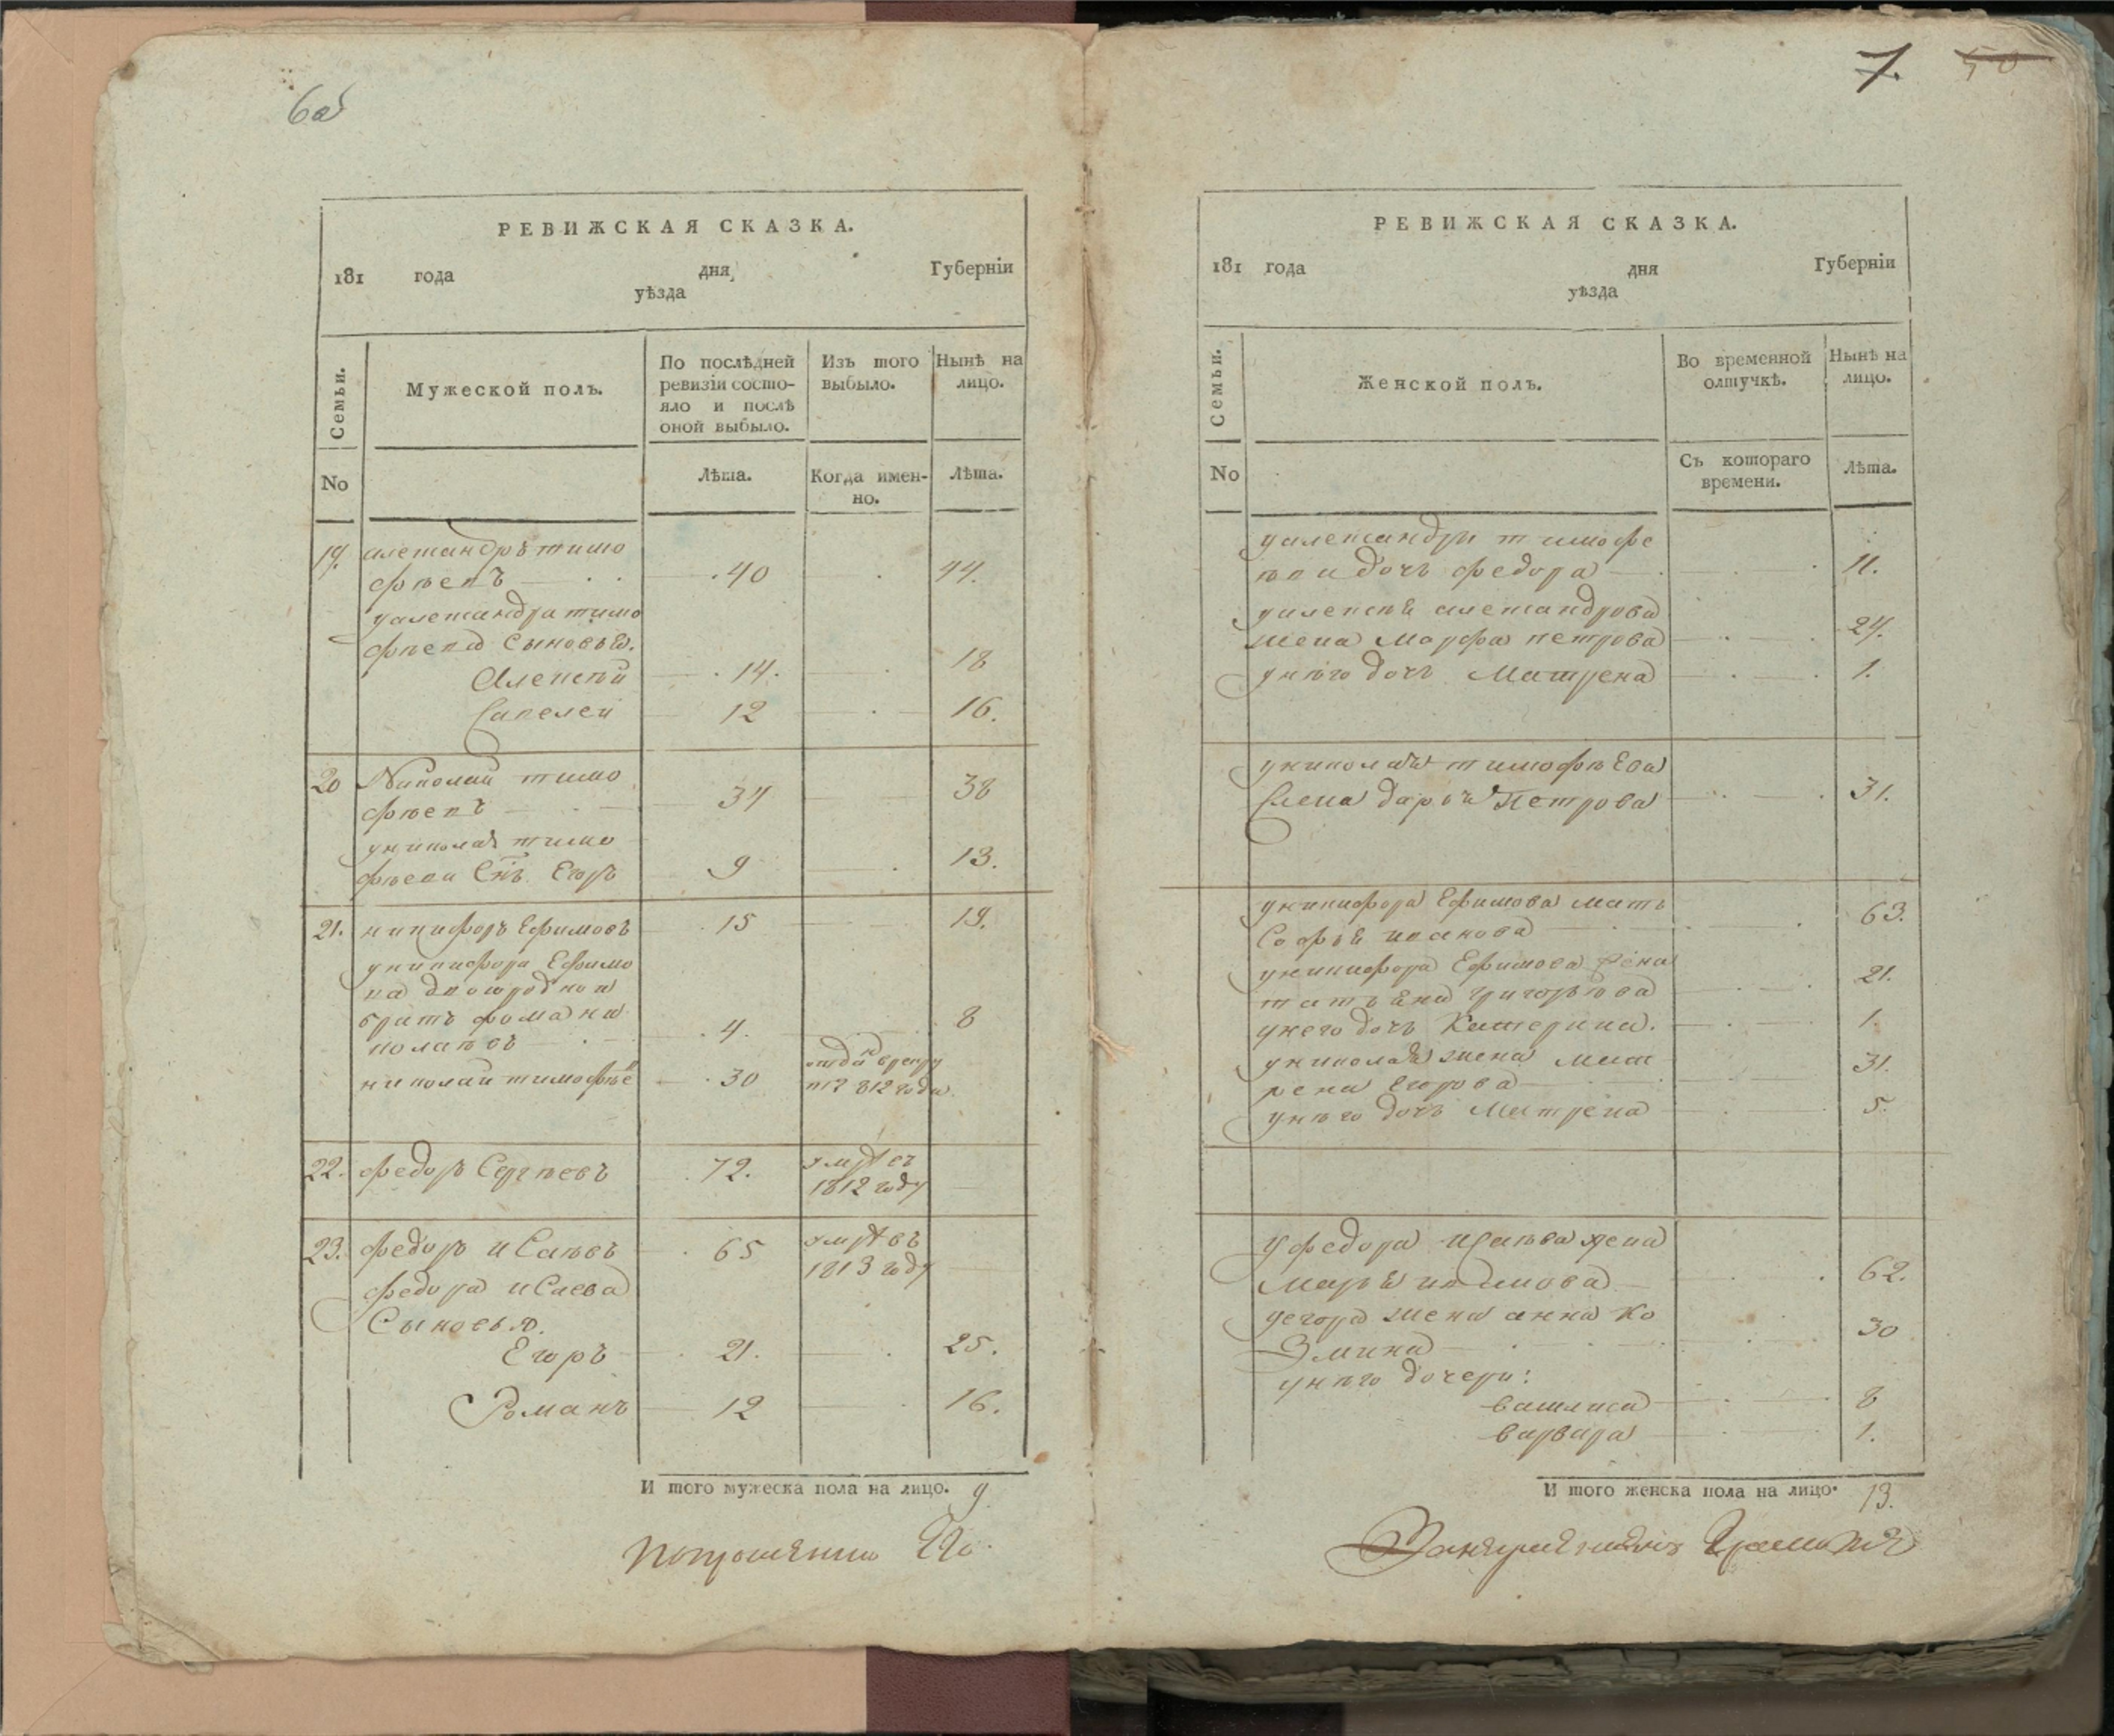 6об
РЕВИЖСКАЯ СКАЗКА.
181 года дня Губерніи
уѣзда
Семьи.
Мужеской полъ.
По послѣдней ревизіи состо-
яло и послѣ
оной выбыло.
Изъ того
выбыло.
Нынѣ на
лицо.
No
Лѣта.
Когда имен-
но.
Лѣта.
19. александръ тимо
фѣевъ 40 44.
уалександра тимо
фѣева Сыновья.
Алексѣй 14. 18
Савелей 12 16.
20 Николай тимо
фѣевъ 34 38
униколая тимо
фѣева Снъ Егоръ 9 13.
21. никифоръ Ефимовъ 15 19.
уникифора Ефимо
ва двоюродной
братъ фома ни
колаевъ 4. 8
николай тимофѣе 30 отдан врекру
812 года
22. федоръ Сергѣевъ 72. умре въ
1812 году
23. федоръ иСаевъ 65 умре въ
1813 году
федора иСаева
Сыновья.
Егоръ 21. 25.
Романъ 12 16.
И того мужеска пола на лицо. 9.
попрошению Его
7. 50
РЕВИЖСКАЯ СКАЗКА.
181 года дня Губерніи
уѣзда
Семьи.
Женской полъ.
Во временной
отлучкѣ.
Нынѣ на
лицо.
No
Съ котораго
времени.
Лѣта.
уалександра тимофе
ѣва дочь федора 11.
уалексѣя александрова
жена Марфа петрова 24.
унѣго дочь Матрена 1.
униколая тимофѣева
жена дарья Петрова 31.
уникифора Ефимова мать
Софья иванова 63.
уникифора Ефимова жена
татьяна григорьева 21.
унего дочь Катерина. 1.
униколая жена мат
рена Егорова 31.
унѣго дочь Матрена 5.
уфедора иСаева жена
марья 62.
уегора жена анна ко
Змина 30
унѣго дочери:
василиса 8
варвара 1.
И того женска пола на лицо. 13.